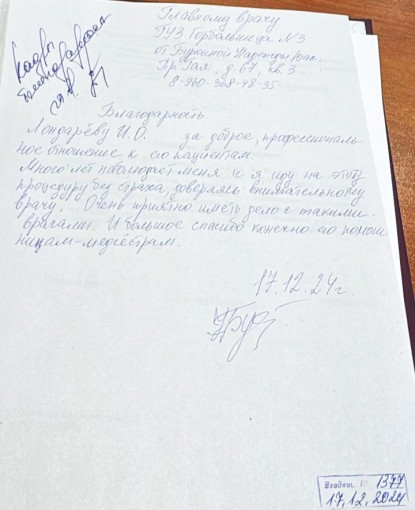 Главному врачу
ГУЗ Горбольница №3
от Надежды
Пр. Гая, д. 67, кв. 3
8-960-368-48-35
Благодарность
И.О. за доброе, профессиональ-
ное отношение к его пациентам.
Много лет наблюдает меня и я иду на эту
процедуру без страха, доверяясь внимательному
врачу. Очень приятно иметь дело с такими
врачами. И большое спасибо конечно его помощ
ницам-медсёстрам.
17.12.24г.
Входящ. № 1377
17.12.2024